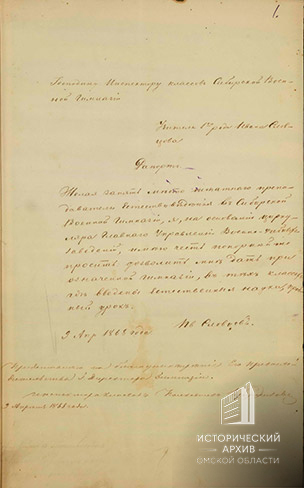 1.
Господину Инспектору классовъ Сибирской Воен-
ной Гимназіи
Учителя 1го рода Ивана Слов-
цова
Рапортъ.
Желая занять мѣсто штатнаго препо-
давателя Естествовѣдѣнія въ Сибирской
Военной Гимназіи, я, на основаніи цирку-
ляра Главнаго Управленія Военно-Учебныхъ
Заведеній, имѣю честь покорнѣйше
просить дозволить мнѣ дать при
означенной Гимназіи, въ тѣхъ класса
гдѣ введены естественныя науки,
ный урокъ.
3 Апр 1868 года Ив Словцовъ
Его Превосхо
Директора Гимназіи
классовъ
3 Апрѣля 1868 года
ИСТОРИЧЕСКИЙ
АРХИВ
ОМСКОЙ ОБЛАСТИ